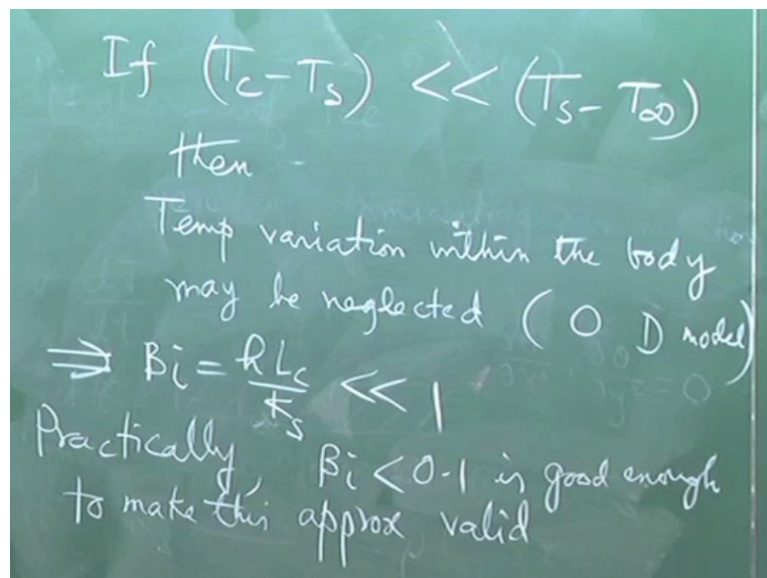 If (Tc-Ts) << (Ts-T∞)
then
Temp variation within the body
may be neglected (0 D model)
⇒ Bi = hLc/ks << 1
Practically, Bi < 0.1 is good enough
to make this approx valid